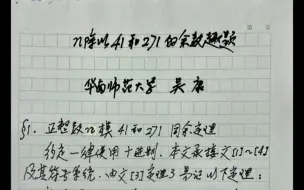 n除以41和271的余数趣题
华南师范大学 吴康
§1. 正整数n模41和271同余定理
约定一律使用十进制. 本文承接文[1]~[4]
及其符号系统. 由文[3]定理3易证以下定理: